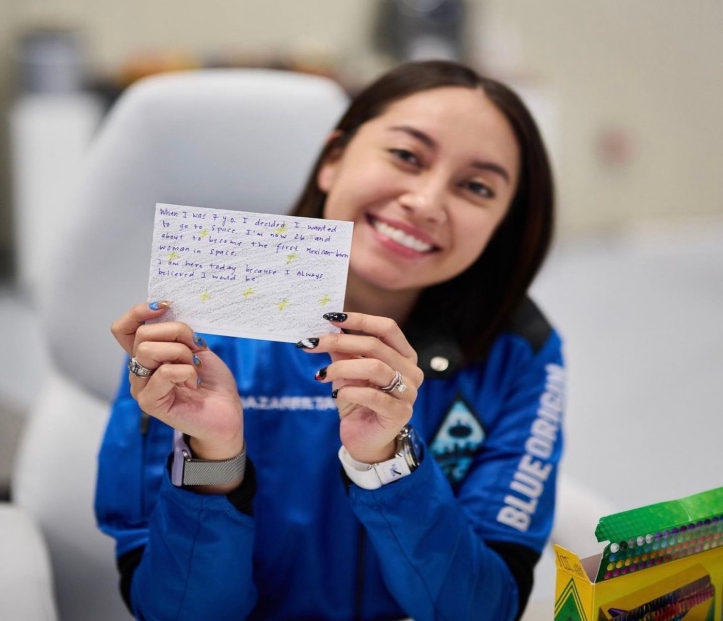 When I was 7 y.o. I decided I wanted
to go to space. I'm now 26 and
about to become the first Mexican-born
woman in space.
I am here today because I always
believed I would be
BLUE ORIGIN